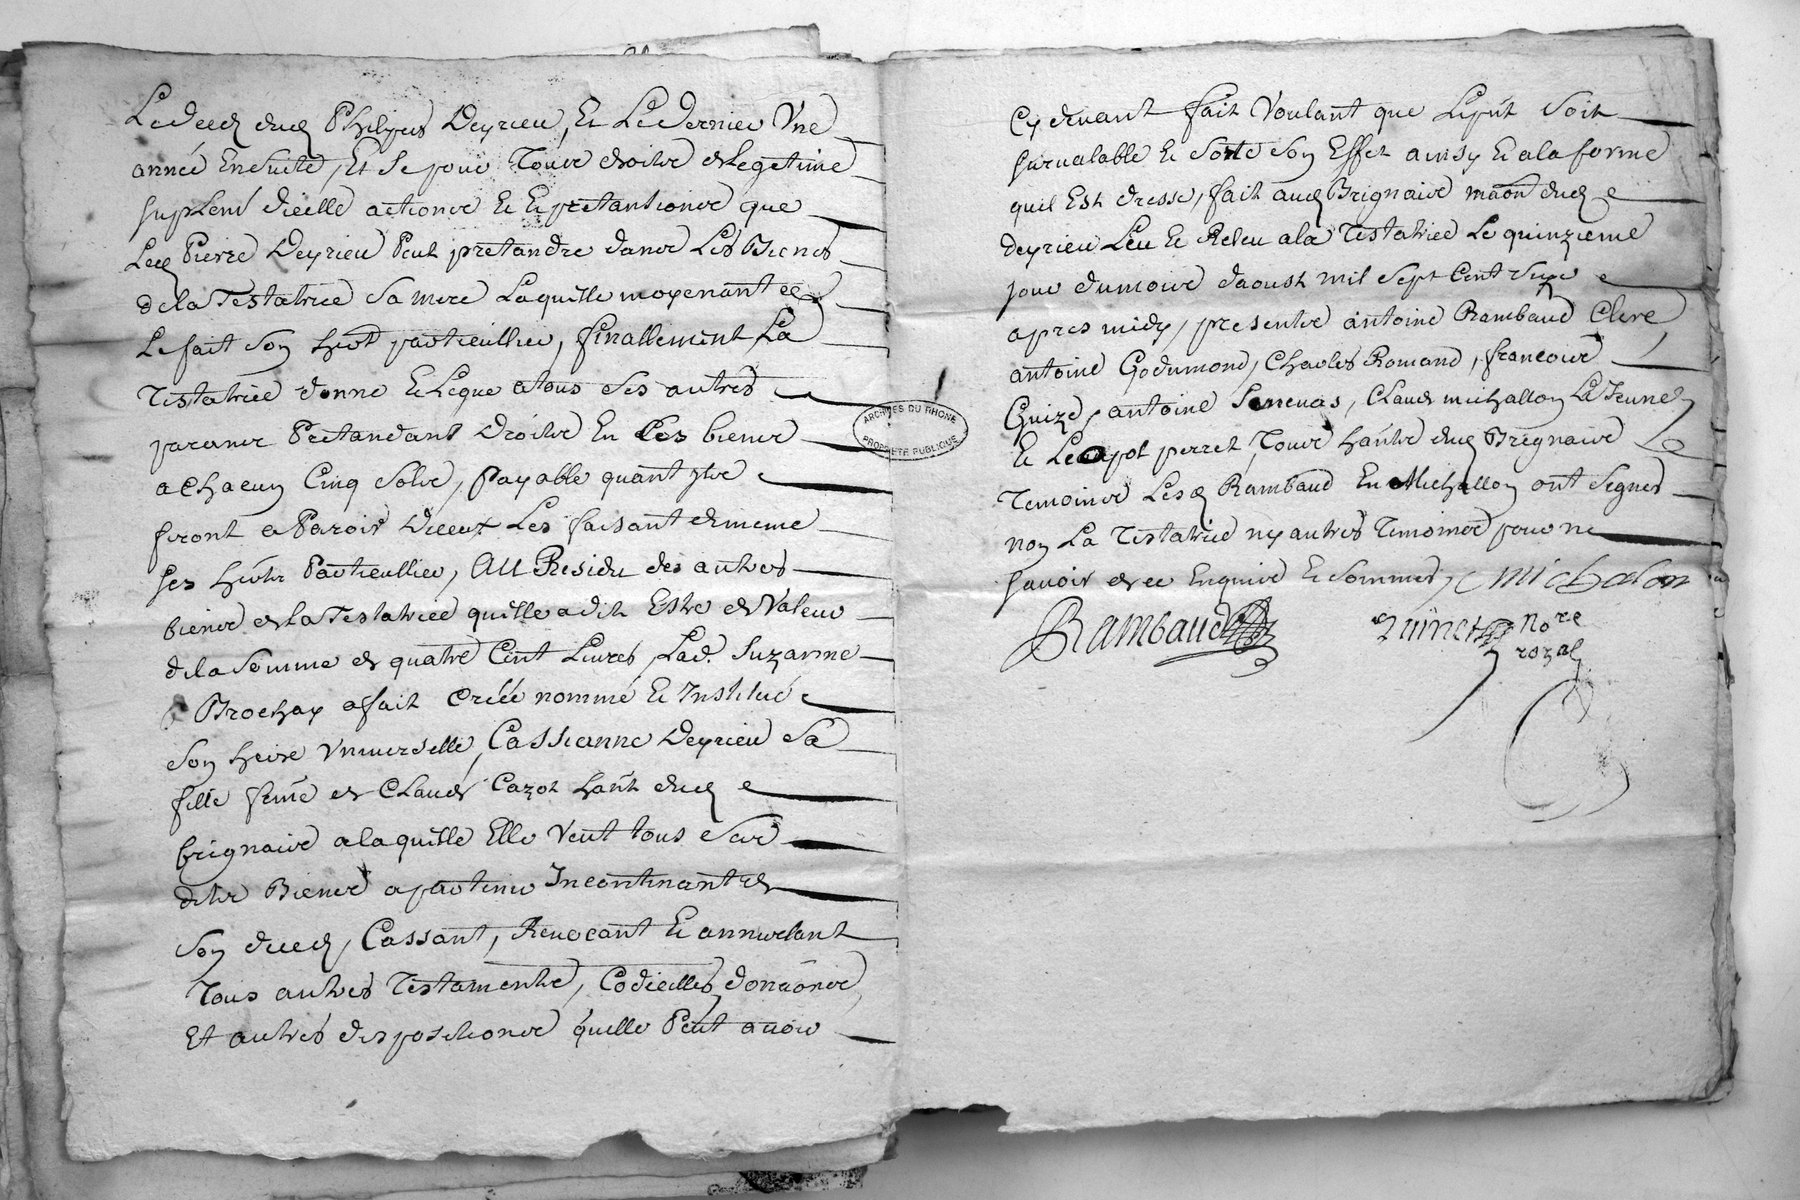 Le deced dud Philipes Deyrieu, Et Le dernier Une
année Ensuite, Et Se pour Tous droits de legetime
suplemt dicelle actions Et Epretantions que
Led Pierre Deyrieu Peut pretandre dans Les Biens
dela Testatrice Sa mere Laquelle moyenant ce
Le fait Son herit particullier, finallement La
Testatrice donne Et Legue atous Ses autres
parans Pretandant droits En Ses biens
achacun Cinq Sols, payable quant ils
feront aParoir diceux Les faisant dememe
Ses hérits Particulliers, Au Residu des autres
biens de la Testatrice quelle adit Estre de Valeur
dela Somme de quatre Cent Livres, Lad. Suzanne
Brochay afait Créé nommé Et Institué
Son heire Universelle, Cassianne Deyrieu Sa
fille feme de Claude Cazot hant dud
brignais alaquelle Elle Veut tous Ses
dits Biens apartenir Incontinant de
Son deced, Cassant, Revocant Et annuelant
Tous autres Testaments, Codicilles, donaons
Et autres dispositions quelle Peut avoir
ARCHIVES DU RHONE
PROPRIETE PUBLIQUE
Cy devant fait Voulant que Lepnt Soit
Survalable Et Sorte Son Effet ainsy Et ala forme
quil Est dresse, fait aud Brignais maon dud
deyrieu Leu Et Releu ala Testatrice Le quinzieme
jour dumois daoust mil Sept Cent Sixe
apres midy, presents antoine Rambaud Clerc,
antoine Godumond, Charles Romand, francois
Guize, antoine Senevas, Claude michallon Le Jeune
Et Leopol perret, Tous hants dud Brignais
Temoins Lesd Rambaud Eu Michallon ont Signés
non La Testatrice ny autres Temoins pour ne
Savoir de ce Enquis Et Sommés, Michalon
Rambaud
nore
royal